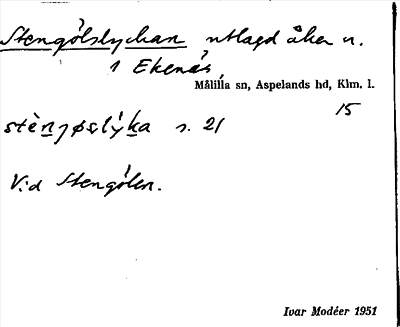 Stengölslyckan utlagd åker n.
1 Ekenäs
Målilla sn, Aspelands hd, Klm. l.
15
s. 21
Vid Stengölen.
Ivar Modéer 1951